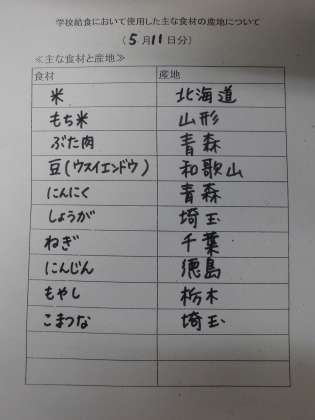 学校給食において使用した主な食材の産地について
(5月11日分)
≪主な食材と産地≫
食材 産地
米 北海道
もち米 山形
ぶた肉 青森
豆(ウスイエンドウ) 和歌山
にんにく 青森
しょうが 埼玉
ねぎ 千葉
にんじん 徳島
もやし 栃木
こまつな 埼玉